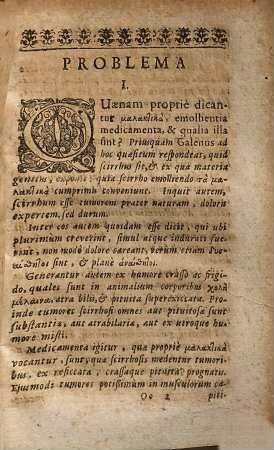 PROBLEMA
I.
QUænam propriè dican-
tur μαλακτικὰ, emollientia
medicamenta, & qualia illa
sint? Priusquam Galenus ad
hoc quæsitum respondeat, quid
scirrhus sit, & ex qua materia
quia scirrho emolliendo τὰ μα-
λακτικὰ cumprimis conveniunt. Inquit autem,
scirrhum esse tumorem præter naturam, doloris
expertem, sed durum.
Inter eos autem quosdam esse dicit, qui ubi
plurimum creverint, simul atque indurati fue-
rint, non modò dolore careant, verum etiam
sint, & planè
Generantur autem ex humore crasso ac frigi-
do, quales sunt in animalium corporibus χολὴ
μέλαινα, atra bilis, & pituita superexiccata. Pro-
inde tumores scirrhosi omnes aut pituitosa sunt
substantia, aut atrabilaria, aut ex utroque hu-
more misti.
Medicamenta igitur, qua propriè μαλακτικὰ
vocantur, sunt, qua scirrhosis medentur tumori-
bus, ex resiccata, crassaque pituita prognatis.
Ejusmodi tumores potissimum in musculorum ca-
Oo 2 piti-